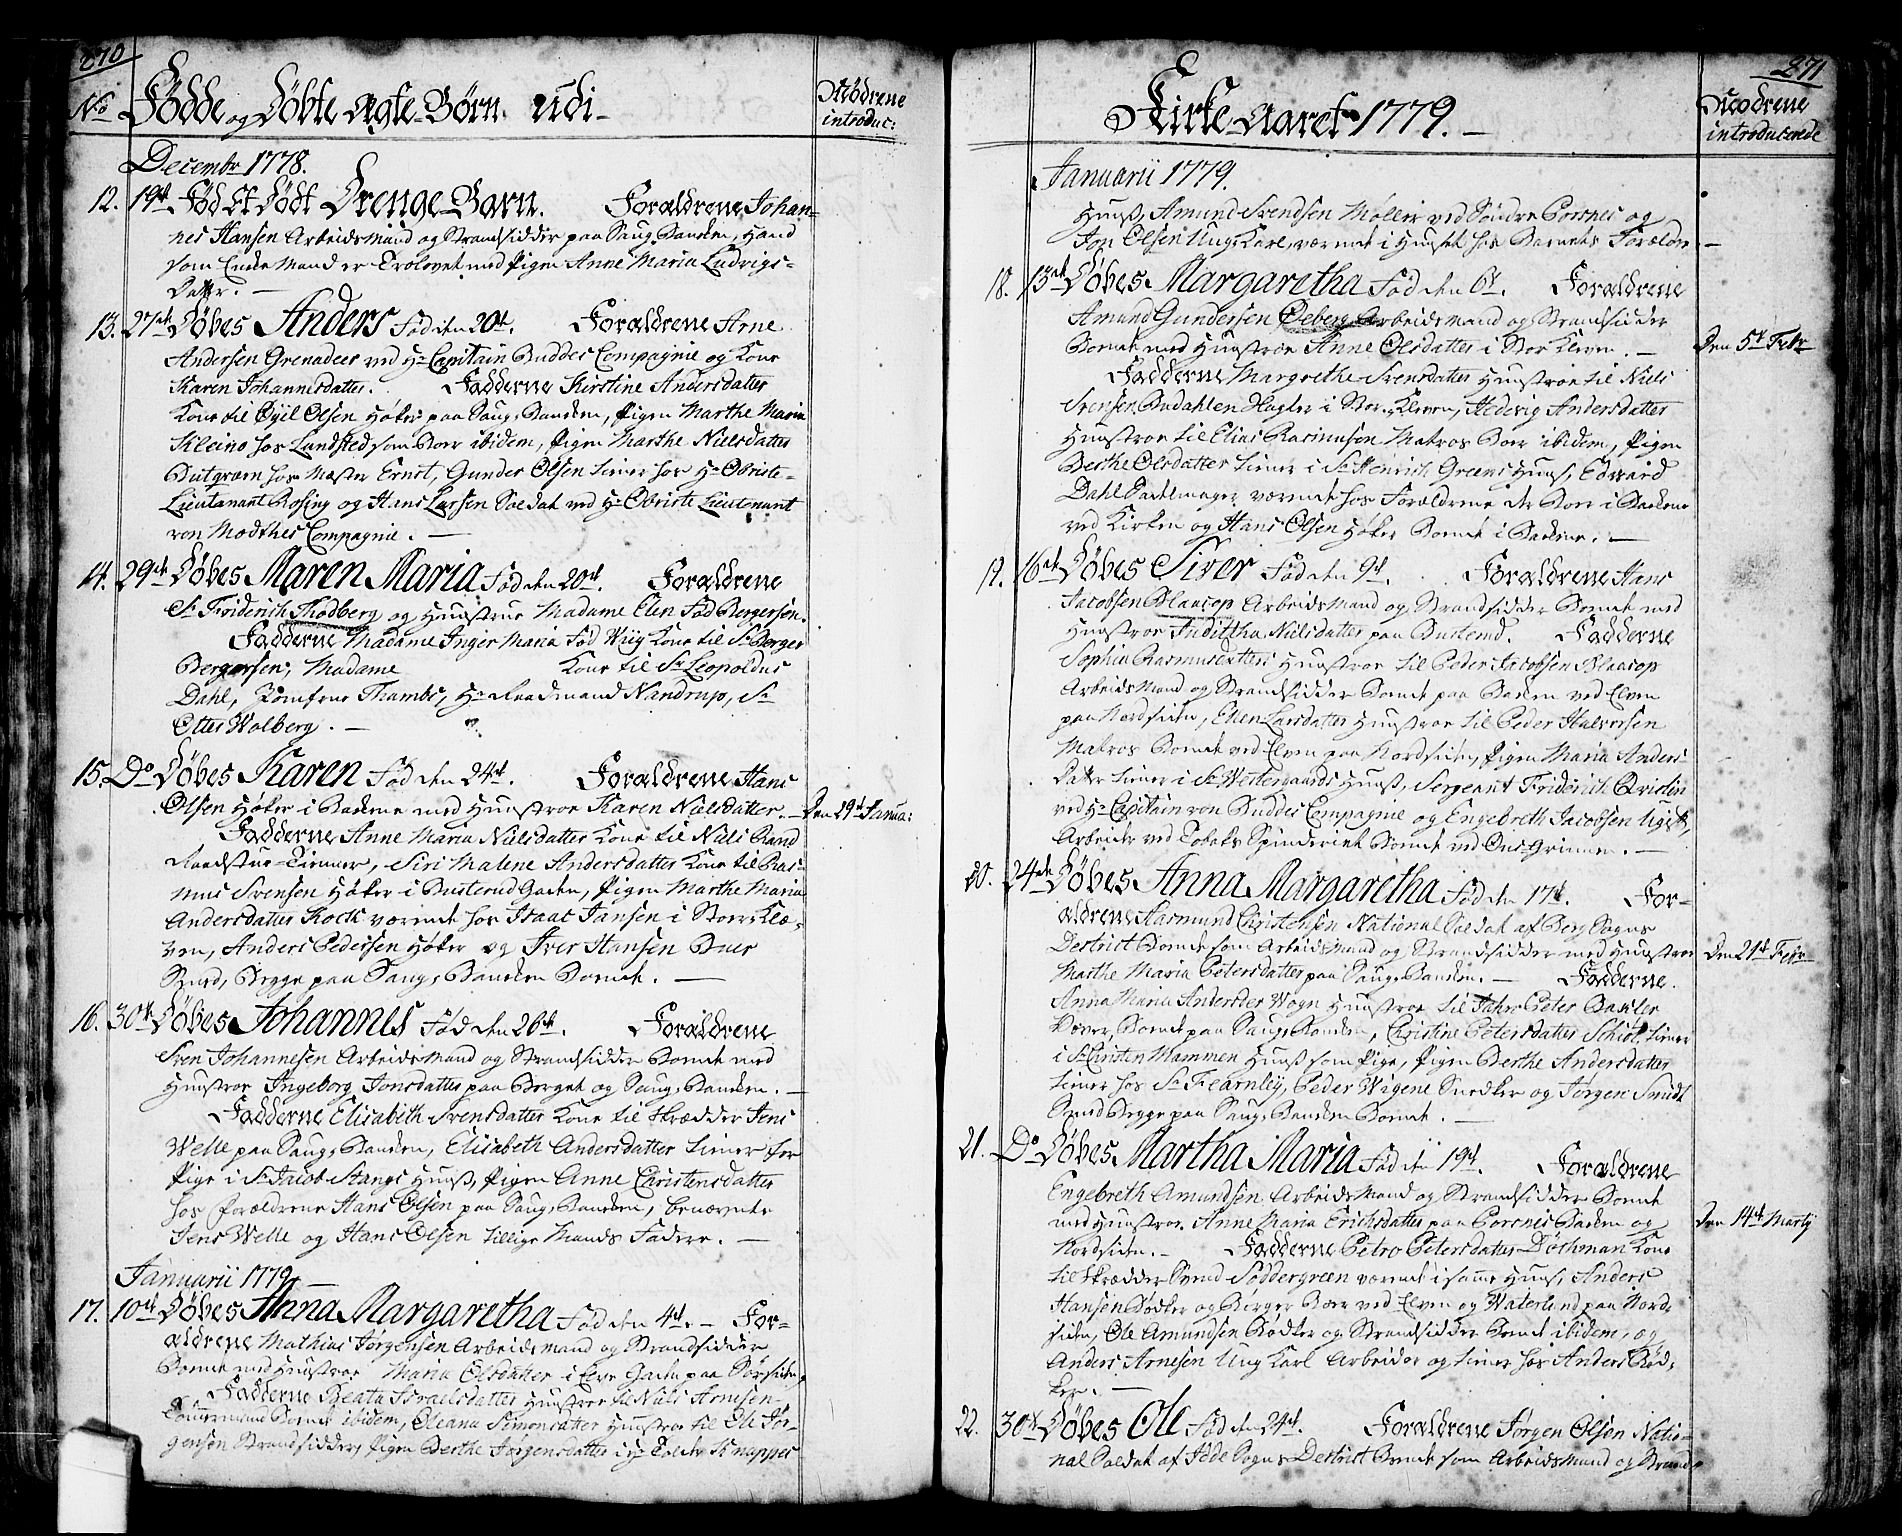 270
No Fødde og Døbte Ægte-Børn udi
Mødrene
introduc:
Decembr 1778.
12. 19de Fød Et Dødt Drenge-Barn. Forældrene Johan-
nes Hansen Arbeidsmand og Strandsidder paa Saug-Banken, Hand
som Enke Mand er Trolovet med Pigen Anne Maria Ludvigs-
Datter.
13. 27de Døbes Anders Fød den 20d. Forældrene Arne
Andersen Grenadeer ved Hr Capitain Buddes Compagnie og Kone
Karen Johannesdatter. Fadderne Kirstine Andersdatter
Kone til Øyel Olsen Høker paa Saug-Banken, Pigen Marthe Maria
hos Lundsted som boer ibidem, Pigen Marthe Nielsdatter
hos Mester Ernst, Gunder Olsen tiener hos Hr Obriste-
Lieutanant Rosing og Hans Larsen Soldat ved Hr Obriste Lieutenant
von Modthes Compagnie.
14. 29de Døbes Maren Maria Fød den 20d. Forældrene
Sr Friderich Thodberg og Hustrue Madame Elen Fød Bergersen.
Fadderne Madame Inger Maria Fød Wiig Kone til Sr Berger
Bergersen, Madame Kone til Sr Leopoldus
Dahl, Jomfrue Thambs, Hr Raadmand Nandrup, Sr
Otter Wolberg.
15. Do Døbes Karen Fød den 24d. Forældrene Hans
Olsen Høker i Bankene med Hustroe Karen Nielsdatter. Den 29d Janua:
Fadderne Anne Maria Nielsdatter Kone til Niels Rand
Raadstue-Tiener, Siri Malene Andersdatter Kone til Ras-
mus Svensen Høker i Busterud Gaden, Pigen Marthe Maria
Andersdatter Kock værende hos Isaac Jansen i Store Klæ-
ven, Anders Pedersen Høker og Iver Hansen Buer
Brygge paa Saug-Banken Boende.
16. 30te Døbes Johannes Fød den 26d. Forældrene
Sven Johannesen Arbeidsmand og Strandsidder Boende med
Hustroe Ingeborg Jonsdatter paa Berget og Saug-Banken.
Fadderne Elisabeth Svensdatter Kone til Skrædder Jens
Welle paa Saug-Banken, Elisabeth Andersdatter tiener for
Pige i Sr Jacob Stangs Huus, Pigen Anne Christensdatter
hos Forældrene Hans Olsen paa Saug-Banken, benævnte
Jens Welle og Hans Olsen tillige Mands Faddere.
Januarii 1779
17. 10de Døbes Anna Margaretha Fød den 4d. For-
ældrene Mathias Jørgensen Arbeidsmand og Strandsidder
Boende med Hustroe Maria Olsdatter i Elve Gaden paa Sørsiden
Fadderne Beata Israelsdatter Hustroe til Niels Arnesen
Tømmermand Boende ibidem, Oleana Simonsdatter Hustroe til Ole Jør-
gensen Strandsidder, Pigen Berthe Jørgensdatter Knappes
271
Kirke-Aaret 1779.
Mødrene
introducerede
Januarii 1779.
Huus, Amund Svendsen Møller ved Søndre Porsnes og
Jon Olsen Ung Karl, værende i Huuset hos Barnets Forældre
18. 13de Døbes Margaretha Fød den 6d. Forældrene
Amund Gundersen Øeberg Arbeidsmand og Strandsidder
Boende med Hustroe Anne Olsdatter i Stor Kleven. Den 5d Febr
Fadderne Margrethe Svensdatter Hustroe til Niels
Svensen Budahlen Hagler i Stor-Kleven, Hedevig Andersdatter
Hustroe til Elias Rasmusen Matros Boer ibidem, Pigen
Berthe Olsdatter tiener i Sr Henrich Greens Huus, Edvard
Dahl Sadelmager værende hos Forældrene der Boer i Bankene
ved Kirken og Hans Olsen Høker Boende i Bankene.
19. 16de Døbes Siver Fød den 9d. Forældrene Hans
Jacobsen Blaaсop Arbeidsmand og Strandsidder Boende med
Hustroe Judittha Nielsdatter paa Busterud. Fadderne
Sophia Rasmusdatter Hustroe til Peder Jacobsen Blaacop
Arbeidsmand og Strandsidder Boende paa Banken ved Elven
paa Nordsiden, Ellen Larsdatter Hustroe til Peder Halvorsen
Matros Boende ved Elven paa Nordsiden, Pigen Maria Anders-
Datter tiener i Sr Westergaards Huus, Sergeant Friderich Qvislin
ved Hr Capitain von Buddes Compagnie og Engebreth Jacobsen ligest,
Arbeider ved Tobaks Spinderiet Boende ved Ous-Grinnen.
20. 24de Døbes Anna Margaretha Fød den 17d. For-
ældrene Aasmund Christensen National Soldat af Berg Sogns
Destrict Boende som Arbeidsmand og Strandsidder med Hustroe Den 21d Febr
Marthe Maria Petersdatter paa Saug-Banken. Fadderne.
Anna Maria Andersdr Wogn Hustroe til Peter Basler
Væver Boende paa Saug-Banken, Christine Petersdatter Schiøt tiener
i Sr Christen Mammen Huus som Pige, Pigen Berthe Andersdatter
tiener hos Sr Fearnley, Peder Wigene Snedker og Jørgen Smidt
Brygge paa Saug-Banken Boende.
21. Do Døbes Martha Maria Fød den 19d. Forældrene
Engebreth Amundsen Arbeidsmand og Strandsidder Boende
med Hustroe Anne Maria Erichsdatter paa Porsnes Banken og Den 14de Martj
Nordsiden. Fadderne Petro Petersdatter Døthman Kone
til Skrædder Svend Søddergreen værende i samme Huus, Anders
Hansen Bødker og Børger Boer ved Elven og Waterland paa Nord-
siden, Ole Amundsen Bødker og Strandsidder Boende ibidem, og
Anders Arnesen Ung Karl Arbeider og tiener hos Anders Bød-
ker.
22. 30te Døbes Ole Fød den 24d. Forældrene Jørgen Olsen Natio-
nal Soldat af Idde Sogns Destrict Boende som Arbeidsmand og Strands